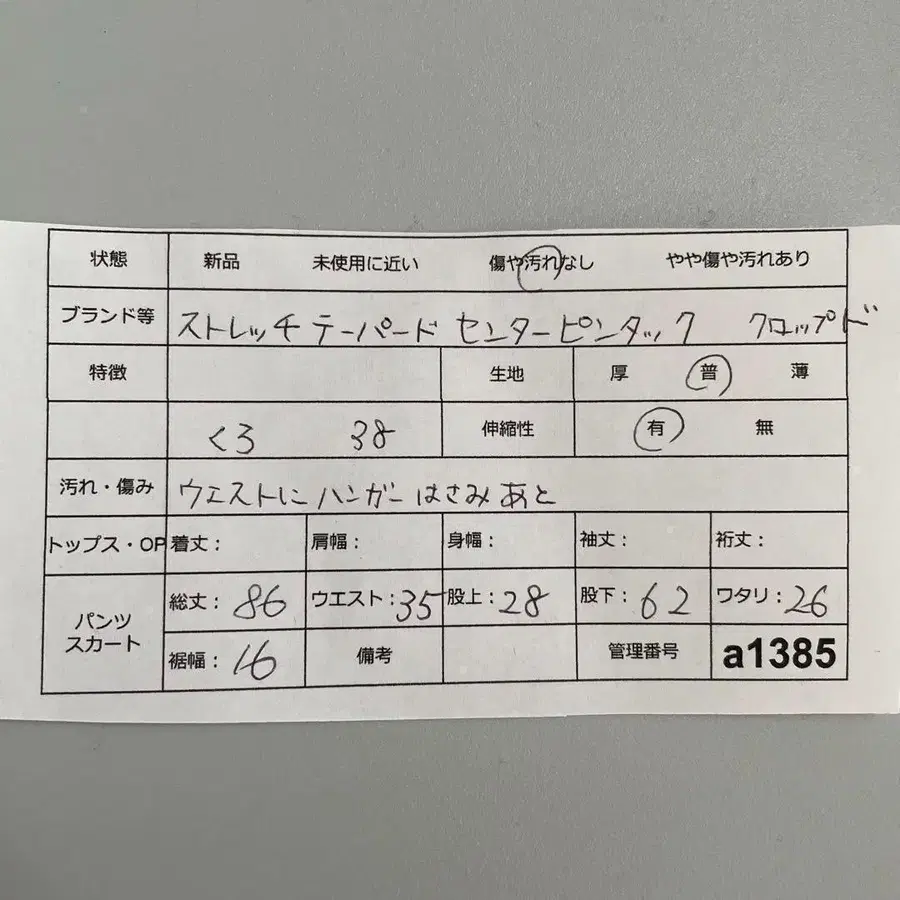 状態 新品 未使用に近い 傷や汚れなし やや傷や汚れあり
ブランド等 ストレッチテーパード センターピンタック クロップド
特徴 生地 厚 普 薄
くろ 38 伸縮性 有 無
汚れ・傷み ウエストにハンガーはさみあと
トップス・OP 着丈: 肩幅: 身幅: 袖丈: 裄丈:
パンツ スカート 総丈: 86 ウエスト: 35 股上: 28 股下: 62 ワタリ: 26
裾幅: 16 備考 管理番号 a1385